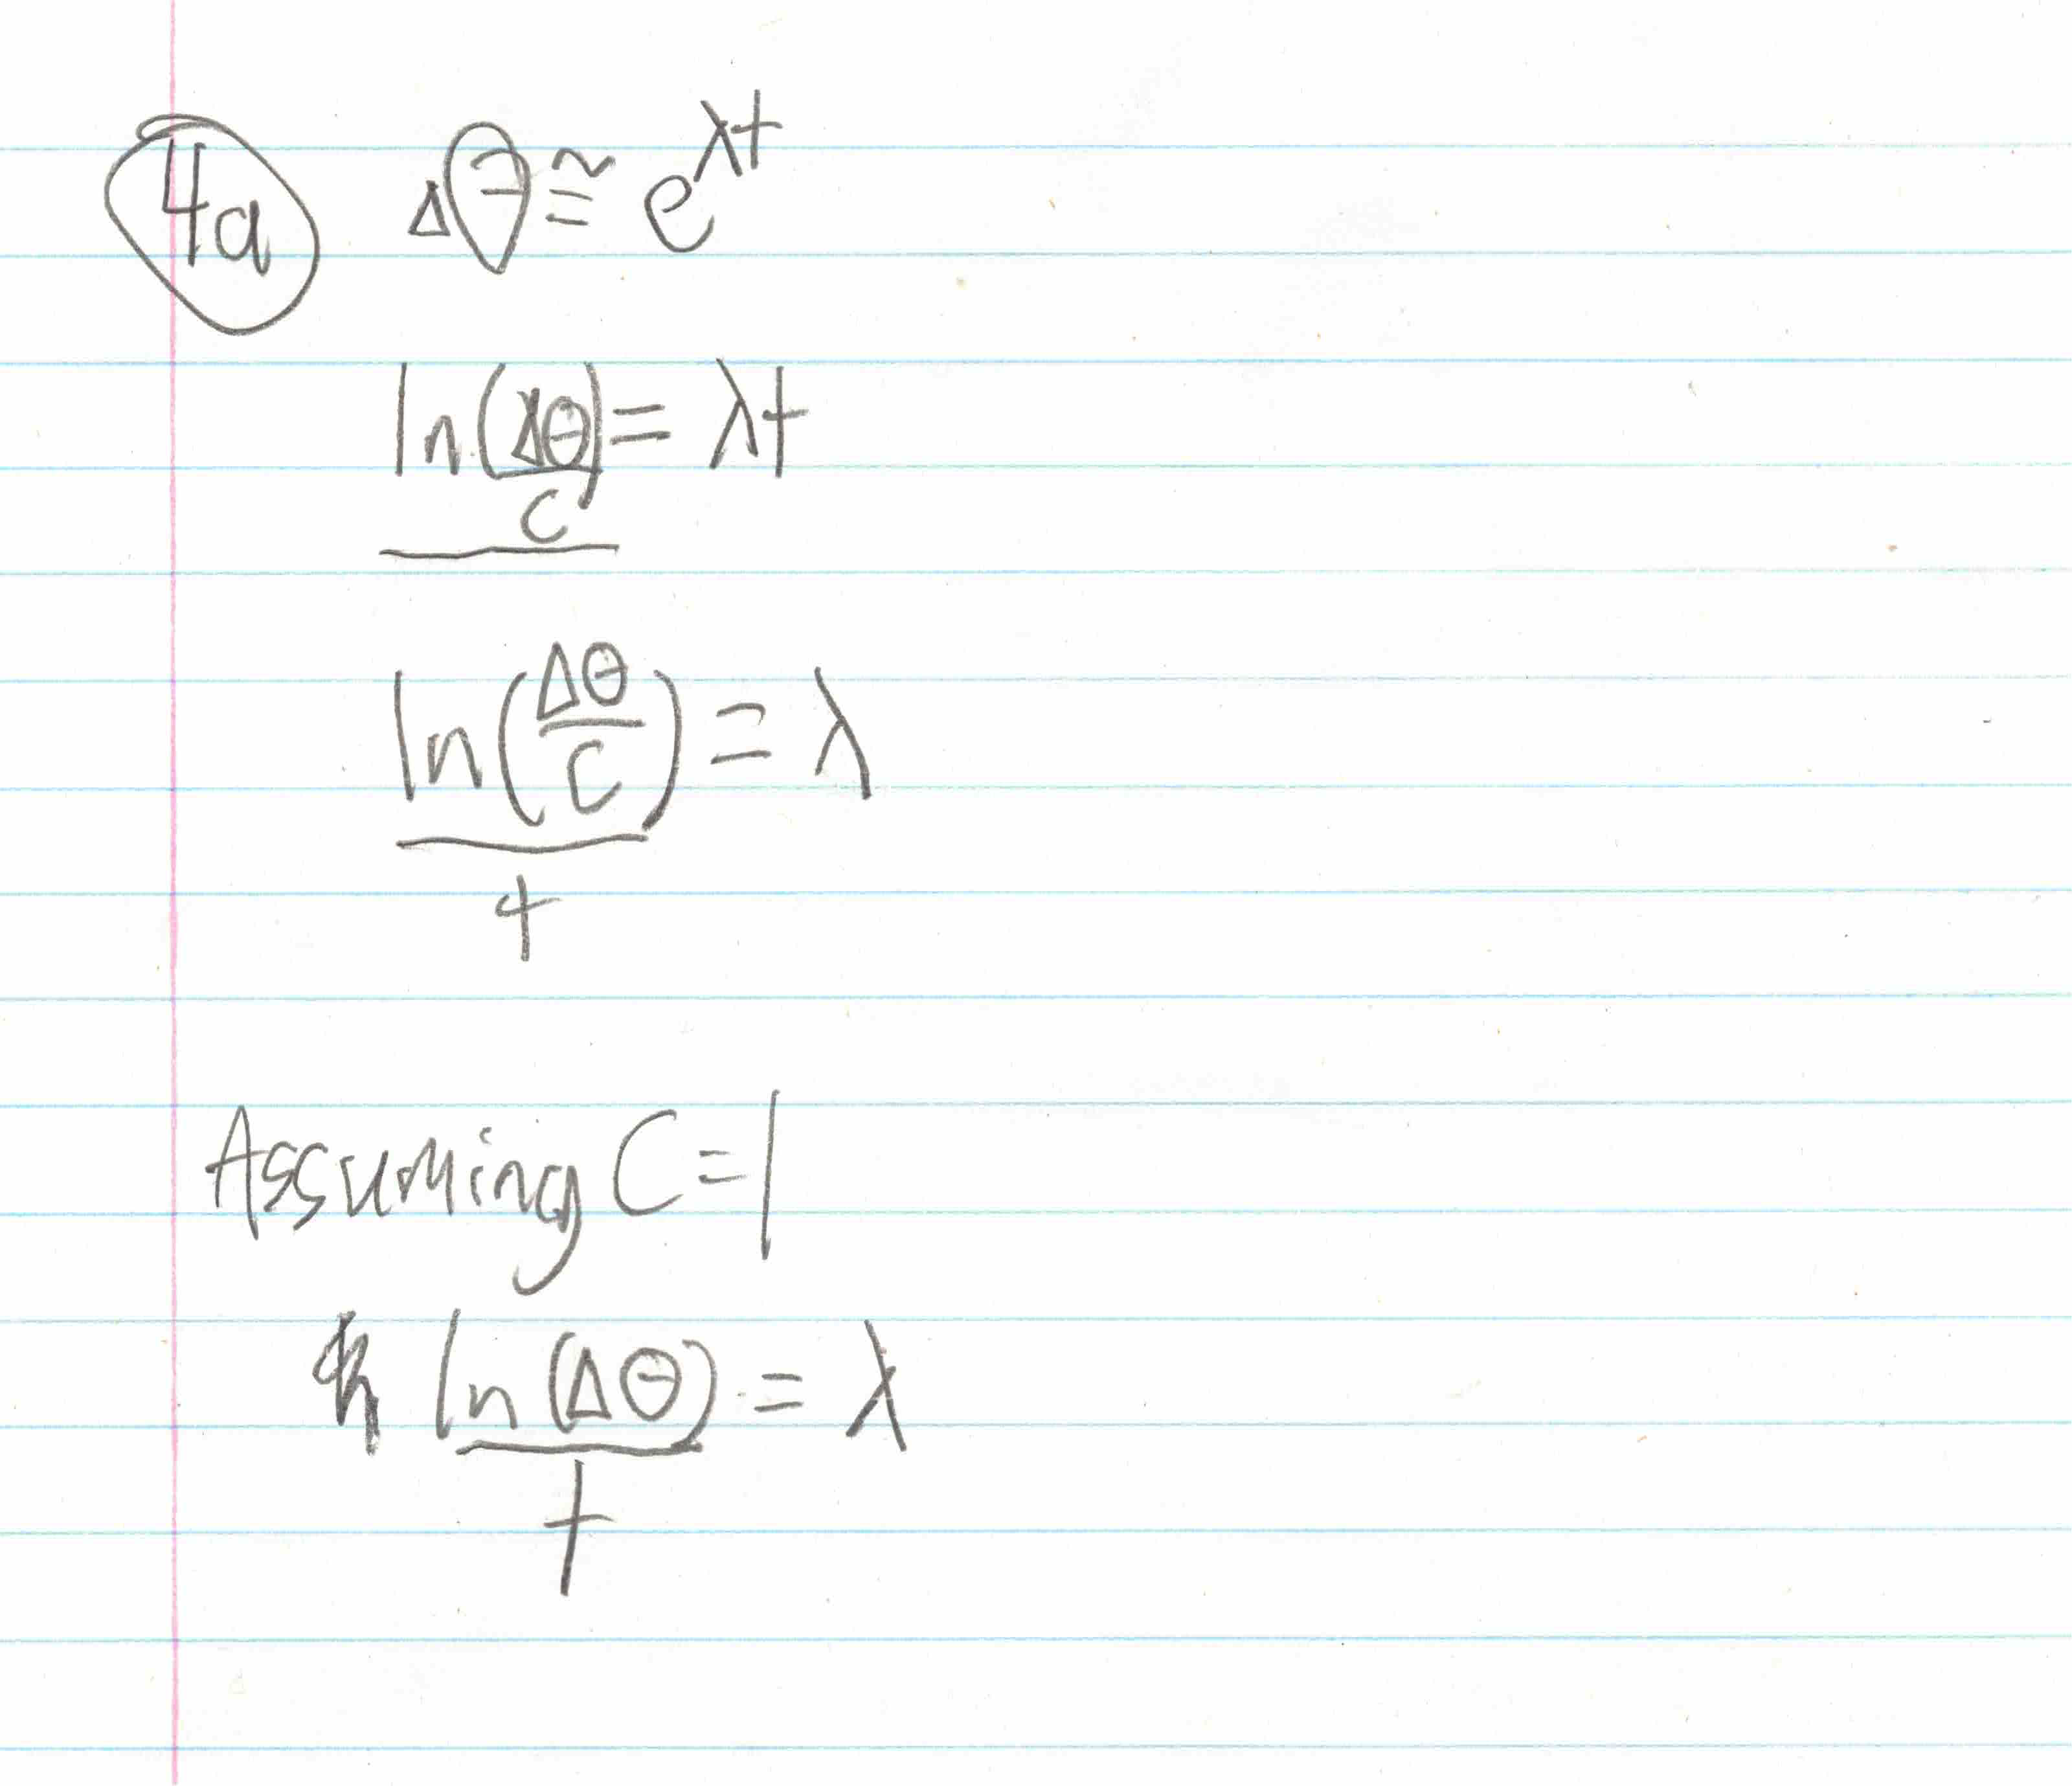 4a Δθ ≅ e^λt
ln(Δθ/C) = λt
ln(Δθ/C)/t = λ
Assuming C=1
ln(Δθ)/t = λ